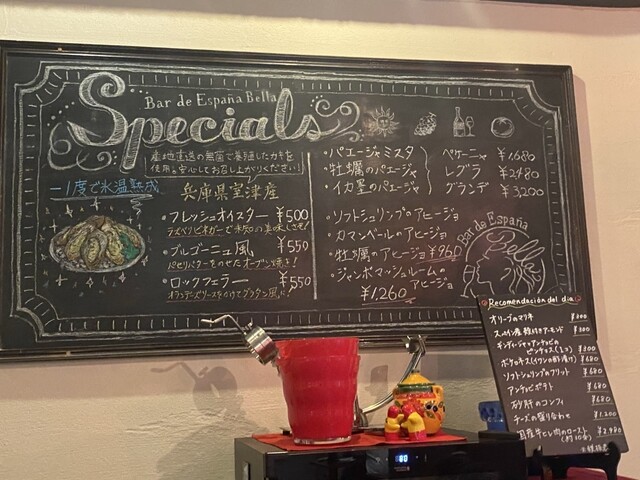 Bar de España Bella
Specials
産地直送の無菌で養殖したカキを
使用。安心してお召し上がりください!
-1度で氷温熟成
兵庫県室津産
・フレッシュオイスター ¥500
ラズベリビネガーで
・ブルゴーニュ風 ¥550
パセリバターをのせたオーブン焼き!
・ロックフェラー ¥550
オランデーズソースをかけてグラタン風に!
・パエージャミスタ
・牡蠣のパエージャ
・イカ墨のパエージャ
ペケーニャ ¥1,680
レグラ ¥2,480
グランデ ¥3,200
・ソフトシュリンプのアヒージョ
・カマンベールのアヒージョ
・牡蠣のアヒージョ ¥960
・ジャンボマッシュルームの
アヒージョ
¥1,260
Bar de España
Bella
Recomendación del dia
オリーブのマリネ ¥300
スペイン産 殻付きアーモンド ¥300
ギンディージャとアンチョビの
ピンチョス(1コ) ¥300
ボケロネス(イワシの酢漬け) ¥680
ソフトシュリンプのフリット ¥680
アンチョビポテト ¥680
砂肝のコンフィ ¥680
チーズの盛り合わせ ¥1,200
牛ヒレ肉のロースト ¥2,980
80